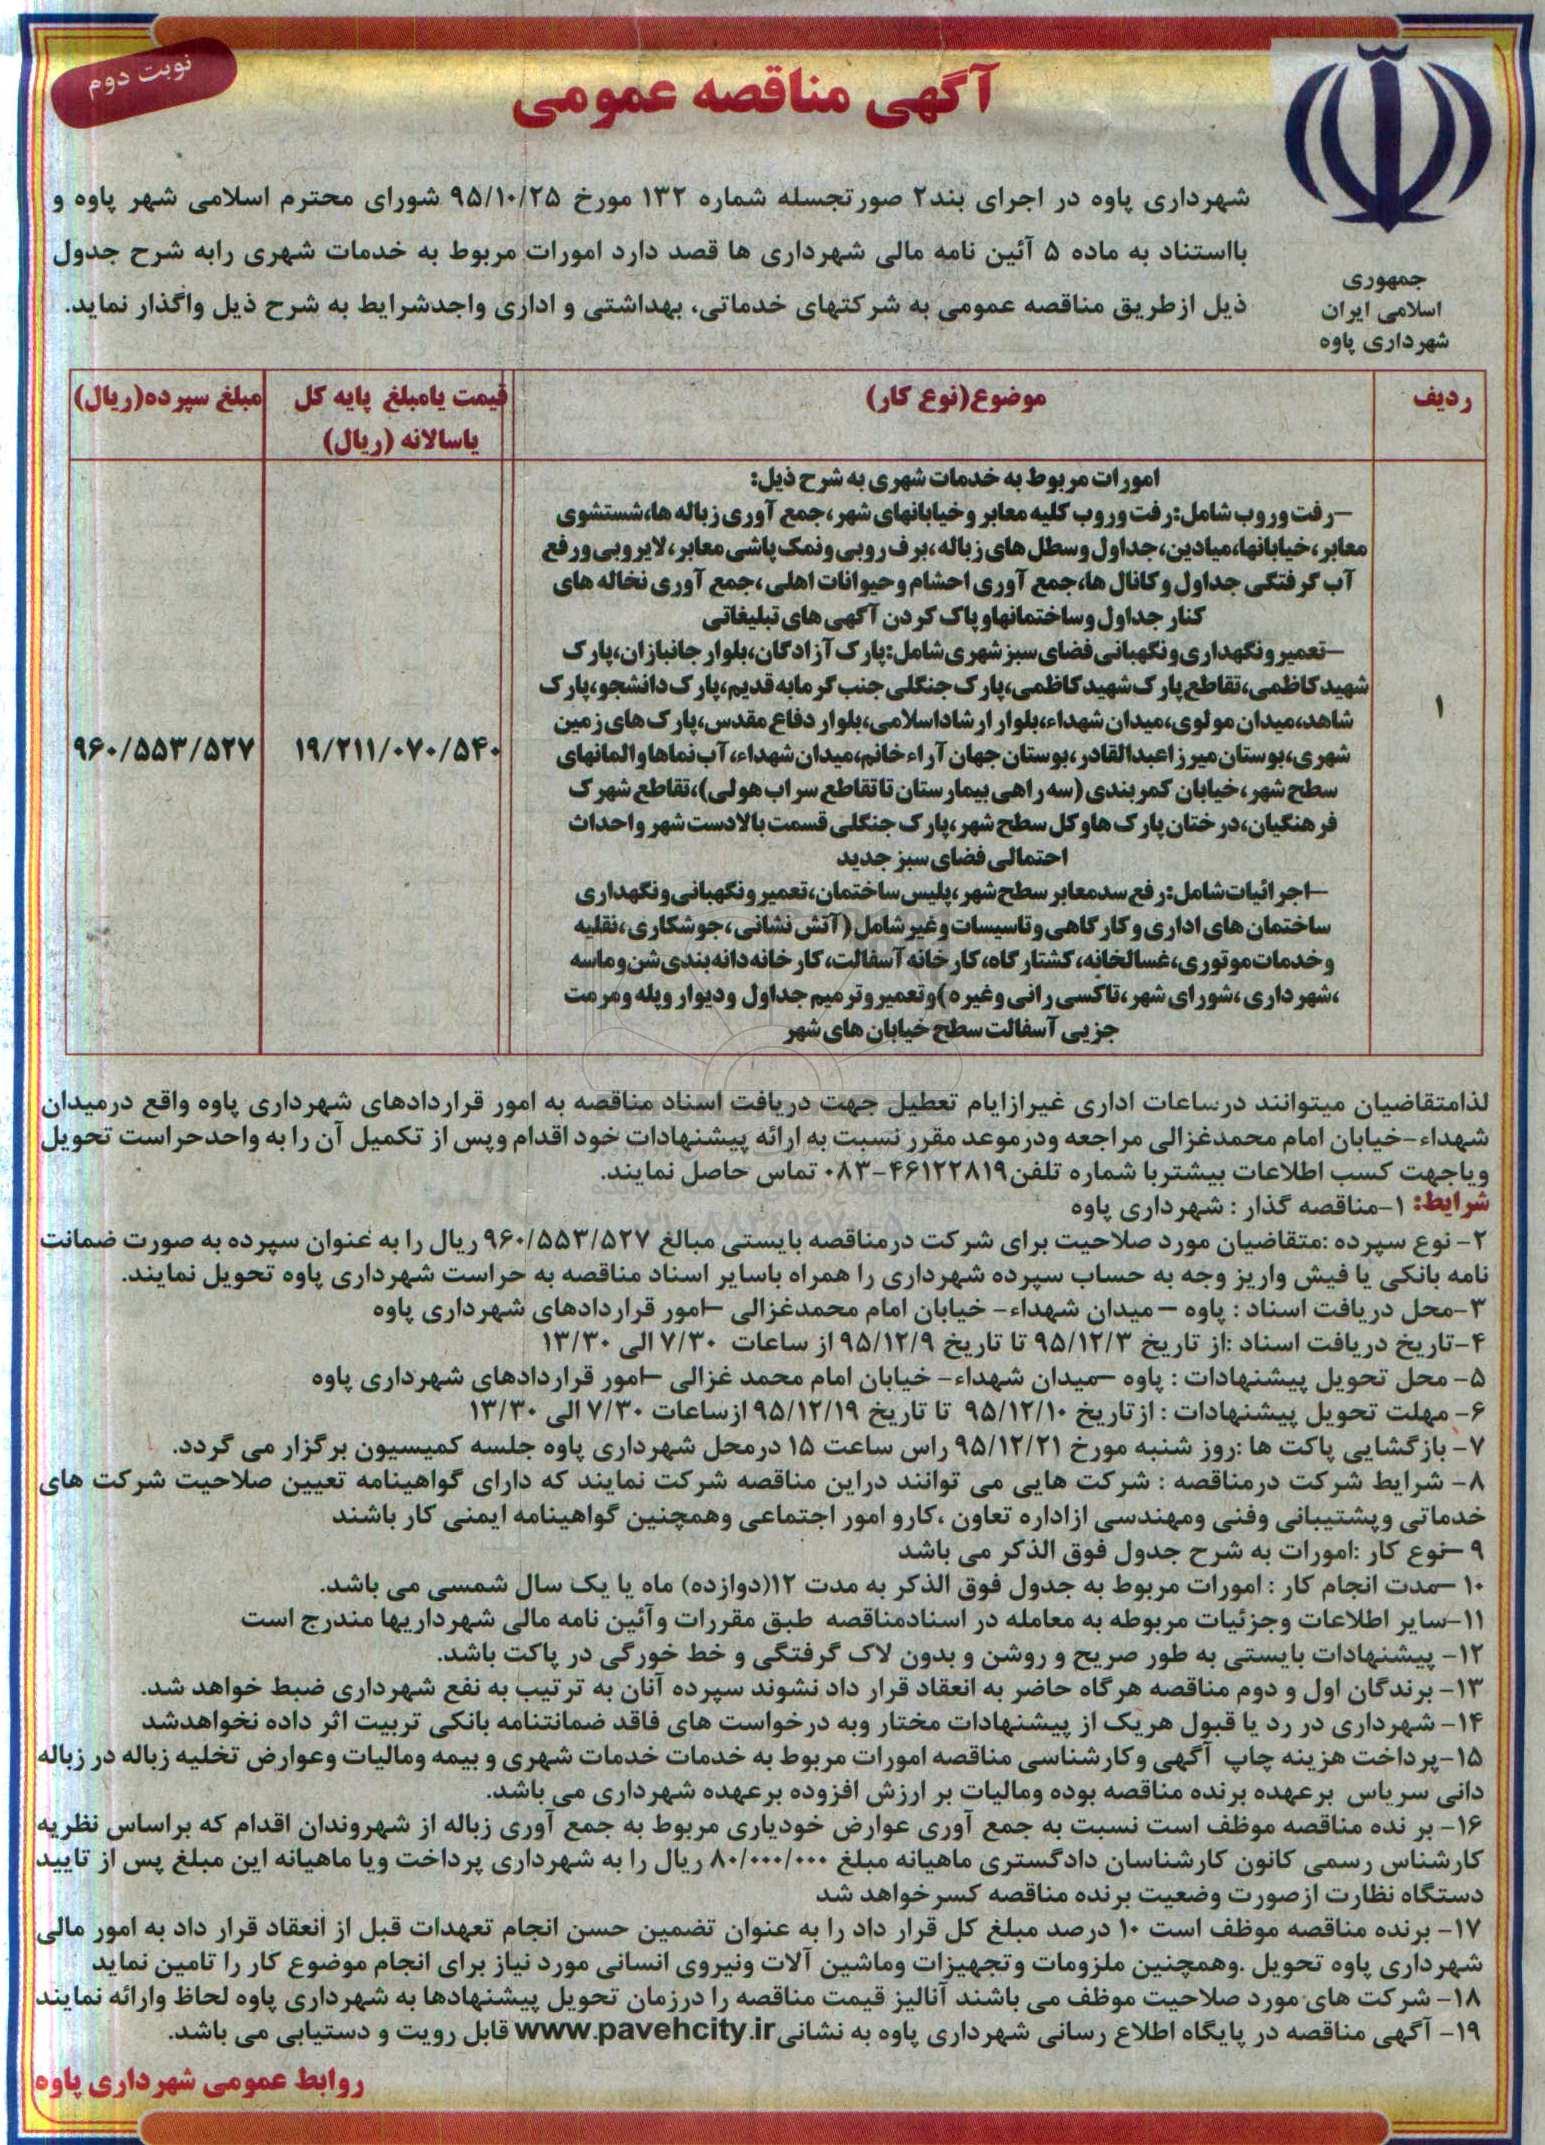 نوبت دوم
آگهی مناقصه عمومی
جمهوری
اسلامی ایران
شهرداری پاوه
شهرداری پاوه در اجرای بند۲ صورتجسله شماره ۱۳۲ مورخ ۹۵/۱۰/۲۵ شورای محترم اسلامی شهر پاوه و
بااستناد به ماده ۵ آئین نامه مالی شهرداری ها قصد دارد امورات مربوط به خدمات شهری رابه شرح جدول
ذیل ازطریق مناقصه عمومی به شرکتهای خدماتی، بهداشتی و اداری واجدشرایط به شرح ذیل واگذار نماید.
ردیف
موضوع(نوع کار)
قیمت یامبلغ پایه کل
یاسالانه (ریال)
مبلغ سپرده(ریال)
۱
امورات مربوط به خدمات شهری به شرح ذیل:
–رفت وروب شامل:رفت وروب کلیه معابر وخیابانهای شهر،جمع آوری زباله ها،شستشوی
معابر،خیابانها،میادین،جداول وسطل های زباله،برف روبی ونمک پاشی معابر،لایروبی ورفع
آب گرفتگی جداول وکانال ها،جمع آوری احشام وحیوانات اهلی،جمع آوری نخاله های
کنار جداول وساختمانهاوپاک کردن آگهی های تبلیغاتی
–تعمیرونگهداری ونگهبانی فضای سبز شهری شامل:پارک آزادگان،بلوار جانبازان،پارک
شهید کاظمی،تقاطع پارک شهید کاظمی،پارک جنگلی جنب گرمابه قدیم،پارک دانشجو،پارک
شاهد،میدان مولوی،میدان شهداء،بلوار ارشاداسلامی،بلوار دفاع مقدس،پارک های زمین
شهری،بوستان میرزاعبدالقادر،بوستان جهان آراءخانم،میدان شهداء،آب نماهاوالمانهای
سطح شهر،خیابان کمربندی (سه راهی بیمارستان تاتقاطع سراب هولی)،تقاطع شهرک
فرهنگیان،درختان پارک هاوکل سطح شهر،پارک جنگلی قسمت بالادست شهر واحداث
احتمالی فضای سبز جدید
–اجرائیات شامل:رفع سدمعابر سطح شهر،پلیس ساختمان،تعمیرونگهبانی ونگهداری
ساختمان های اداری وکارگاهی وتاسیسات وغیر شامل (آتش نشانی،جوشکاری،نقلیه
وخدمات موتوری،غسالخانه،کشتارگاه،کارخانه آسفالت،کارخانه دانه بندی شن وماسه
،شهرداری،شورای شهر،تاکسی رانی وغیره)وتعمیروترمیم جداول ودیوار وپله ومرمت
جزیی آسفالت سطح خیابان های شهر
۱۹/۲۱۱/۰۷۰/۵۴۰
۹۶۰/۵۵۳/۵۲۷
لذامتقاضیان میتوانند درساعات اداری غیرازایام تعطیل جهت دریافت اسناد مناقصه به امور قراردادهای شهرداری پاوه واقع درمیدان
شهداء-خیابان امام محمدغزالی مراجعه ودرموعد مقرر نسبت به ارائه پیشنهادات خود اقدام وپس از تکمیل آن را به واحدحراست تحویل
ویاجهت کسب اطلاعات بیشتربا شماره تلفن۴۶۱۲۲۸۱۹-۰۸۳ تماس حاصل نمایند.
شرایط: ۱-مناقصه گذار : شهرداری پاوه
۲- نوع سپرده :متقاضیان مورد صلاحیت برای شرکت درمناقصه بایستی مبالغ ۹۶۰/۵۵۳/۵۲۷ ریال را به عنوان سپرده به صورت ضمانت
نامه بانکی یا فیش واریز وجه به حساب سپرده شهرداری را همراه باسایر اسناد مناقصه به حراست شهرداری پاوه تحویل نمایند.
۳-محل دریافت اسناد : پاوه – میدان شهداء- خیابان امام محمدغزالی –امور قراردادهای شهرداری پاوه
۴-تاریخ دریافت اسناد :از تاریخ ۹۵/۱۲/۳ تا تاریخ ۹۵/۱۲/۹ از ساعات ۷/۳۰ الی ۱۳/۳۰
۵- محل تحویل پیشنهادات : پاوه –میدان شهداء- خیابان امام محمد غزالی –امور قراردادهای شهرداری پاوه
۶- مهلت تحویل پیشنهادات : ازتاریخ ۹۵/۱۲/۱۰ تا تاریخ ۹۵/۱۲/۱۹ ازساعات ۷/۳۰ الی ۱۳/۳۰
۷- بازگشایی پاکت ها :روز شنبه مورخ ۹۵/۱۲/۲۱ راس ساعت ۱۵ درمحل شهرداری پاوه جلسه کمیسیون برگزار می گردد.
۸- شرایط شرکت درمناقصه : شرکت هایی می توانند دراین مناقصه شرکت نمایند که دارای گواهینامه تعیین صلاحیت شرکت های
خدماتی وپشتیبانی وفنی ومهندسی ازاداره تعاون ،کارو امور اجتماعی وهمچنین گواهینامه ایمنی کار باشند
۹ –نوع کار :امورات به شرح جدول فوق الذکر می باشد
۱۰ –مدت انجام کار : امورات مربوط به جدول فوق الذکر به مدت ۱۲(دوازده) ماه یا یک سال شمسی می باشد.
۱۱-سایر اطلاعات وجزئیات مربوطه به معامله در اسنادمناقصه طبق مقررات وآئین نامه مالی شهرداریها مندرج است
۱۲- پیشنهادات بایستی به طور صریح و روشن و بدون لاک گرفتگی و خط خورگی در پاکت باشد.
۱۳- برندگان اول و دوم مناقصه هرگاه حاضر به انعقاد قرار داد نشوند سپرده آنان به ترتیب به نفع شهرداری ضبط خواهد شد.
۱۴- شهرداری در رد یا قبول هریک از پیشنهادات مختار وبه درخواست های فاقد ضمانتنامه بانکی تربیت اثر داده نخواهدشد
۱۵-پرداخت هزینه چاپ آگهی وکارشناسی مناقصه امورات مربوط به خدمات خدمات شهری و بیمه ومالیات وعوارض تخلیه زباله در زباله
دانی سریاس برعهده برنده مناقصه بوده ومالیات بر ارزش افزوده برعهده شهرداری می باشد.
۱۶- بر نده مناقصه موظف است نسبت به جمع آوری عوارض خودیاری مربوط به جمع آوری زباله از شهروندان اقدام که براساس نظریه
کارشناس رسمی کانون کارشناسان دادگستری ماهیانه مبلغ ۸۰/۰۰۰/۰۰۰ ریال را به شهرداری پرداخت ویا ماهیانه این مبلغ پس از تایید
دستگاه نظارت ازصورت وضعیت برنده مناقصه کسر خواهد شد
۱۷- برنده مناقصه موظف است ۱۰ درصد مبلغ کل قرار داد را به عنوان تضمین حسن انجام تعهدات قبل از انعقاد قرار داد به امور مالی
شهرداری پاوه تحویل .وهمچنین ملزومات وتجهیزات وماشین آلات ونیروی انسانی مورد نیاز برای انجام موضوع کار را تامین نماید
۱۸- شرکت های مورد صلاحیت موظف می باشند آنالیز قیمت مناقصه را درزمان تحویل پیشنهادها به شهرداری پاوه لحاظ وارائه نمایند
۱۹- آگهی مناقصه در پایگاه اطلاع رسانی شهرداری پاوه به نشانی www.pavehcity.ir قابل رویت و دستیابی می باشد.
روابط عمومی شهرداری پاوه